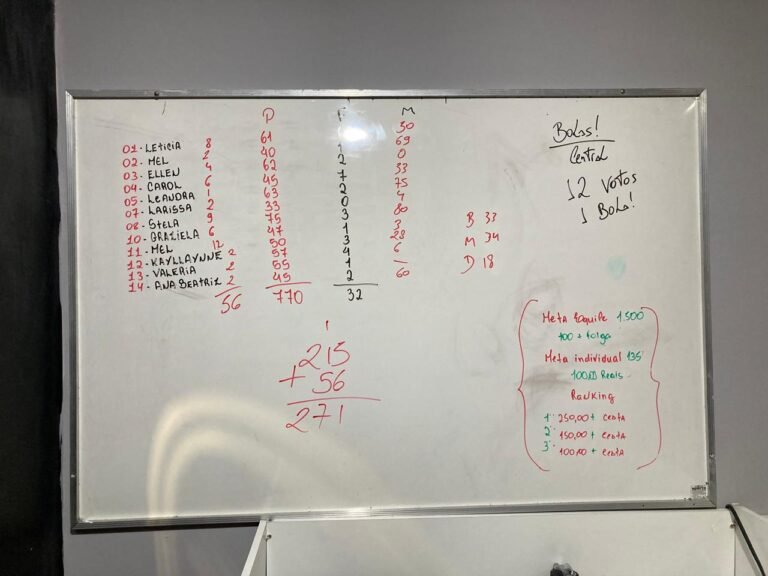 P M
01- LETICIA 8 61 50
02- MEL 2 40 1 69
03- ELLEN 4 62 2 0
04- CAROL 6 45 7 33
05- LEANDRA 1 63 2 75
07- LARISSA 2 33 0 4
08- STELA 9 75 3 80
10- GRAZIELA 6 47 1 3
11- MEL 12 50 3 28
12- KAYLLAYNNE 2 57 4 6
13- VALERIA 2 55 1 –
14- ANA BEATRIZ 2 45 2 60
56 770 32
1
215
+ 56
271
B 33
M 34
D 18
BOLOS!
Central
12 VOTOS
1 BOLO!
META EQUIPE 1.500
100 + folga
META individual 135
100,00 Reais
RANKING
1º 250,00 + CESTA
2º 150,00 + CESTA
3º 100,00 + CESTA